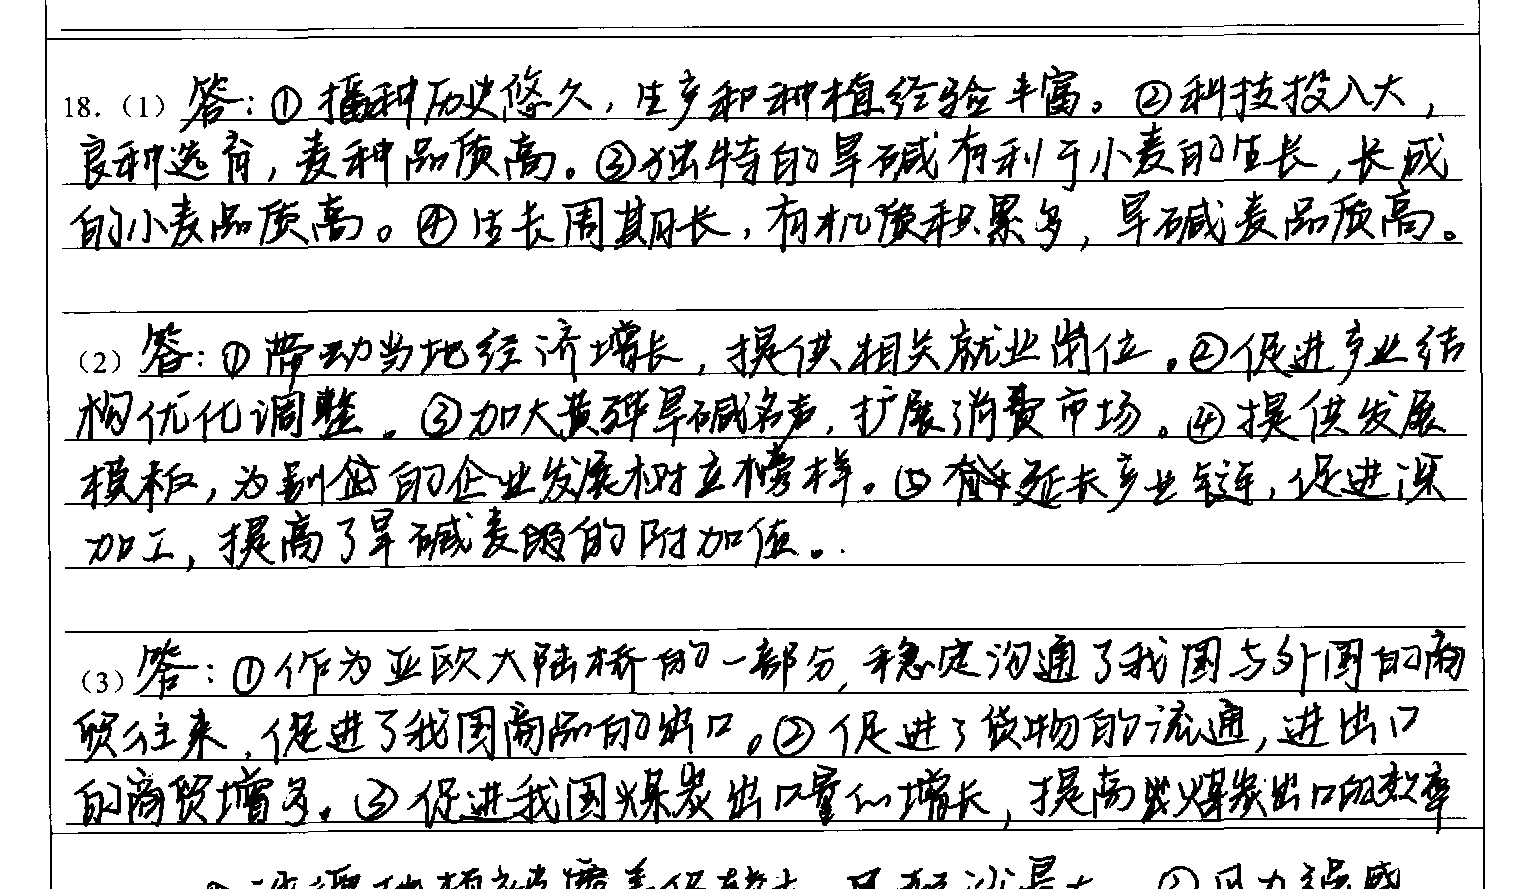 18.（1）答：①播种历史悠久，生产和种植经验丰富。②科技投入大，
良种选育，麦种品质高。③独特的旱碱有利于小麦的生长，长成
的小麦品质高。④生长周期长，有机质积累多，旱碱麦品质高。
（2）答：①带动当地经济增长，提供相关就业岗位。②促进产业结
构优化调整。③加大黄骅旱碱名声，扩展消费市场。④提供发展
模板，为别的企业发展树立榜样。⑤延长产业链，促进深
加工，提高了旱碱麦的附加值。
（3）答：①作为亚欧大陆桥的一部分，稳定沟通了我国与外国的商
贸往来，促进了我国商品的出口。②促进了货物的流通，进出口
的商贸增多。③促进我国煤炭出口量的增长，提高煤炭出口的效率